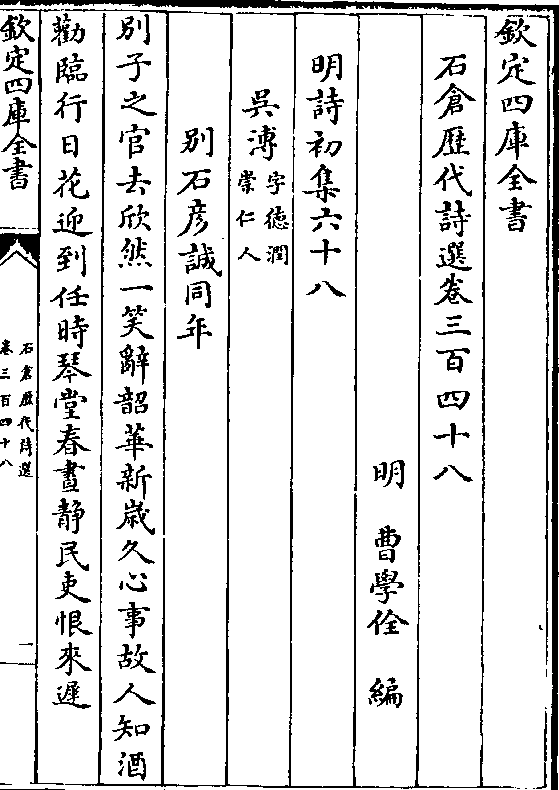 欽定四庫全書
石倉歷代詩選卷三百四十八
明 曹學佺 編
明詩初集六十八
吳溥字德潤崇仁人
别石彦誠同年
别子之官去欣然一笑辭韶華新歲久心事故人知酒
勸臨行日花迎到任時琴堂春晝靜民吏恨來遲
欽定四庫全書
石倉歷代詩選
卷三百四十八
一